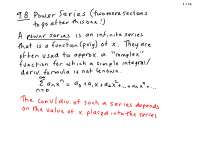 9.8 Power Series (two more sections
to go after this one!)
A power series is an infinite series
that is a function (poly) of x. They are
often used to approx a "complex"
function for which a simple integral/
deriv formula is not known.
∞
Σ aₙxⁿ = a₀ + a₁x + a₂x² + ... + aₙxⁿ + ...
n=0
The conv/div of such a series depends
on the value of x placed into the series